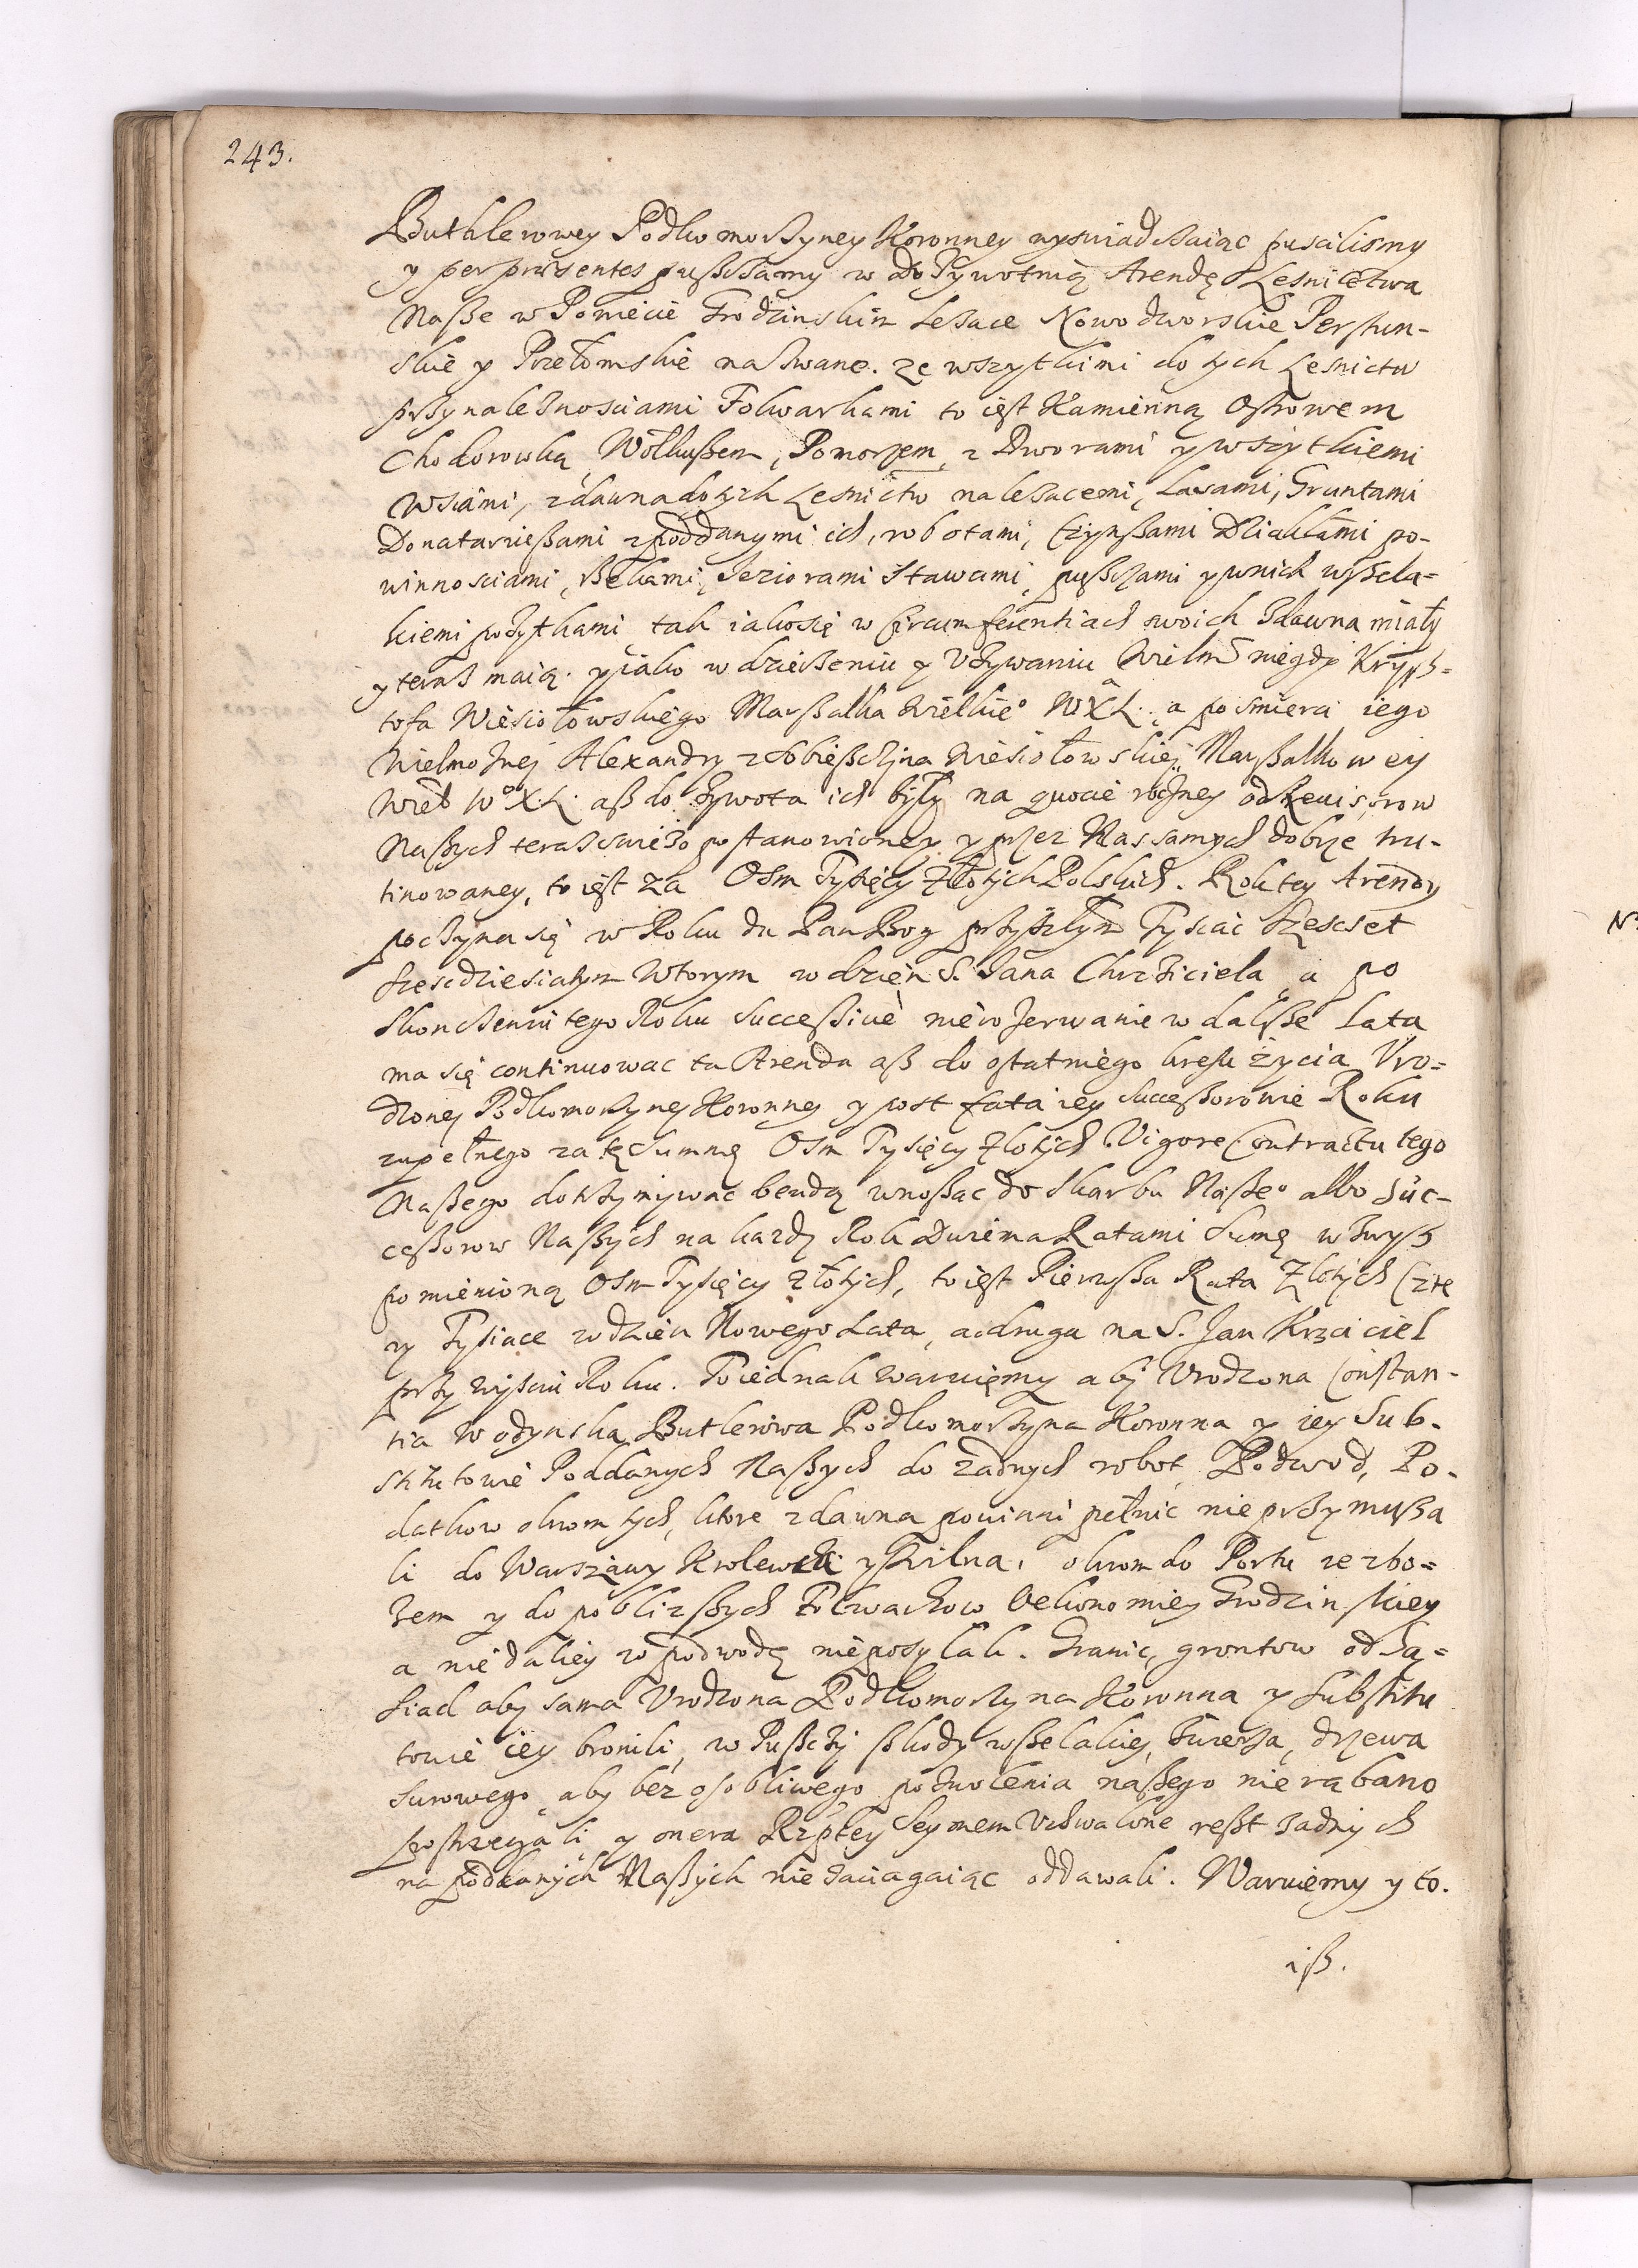 243.
Buthlerowey Podkomorzyney Koronney wyswiadczaiąc puscilismy
y per præsentes pusczamy w Dożywotnią Arendę Lesnictwa
Nasze w Powiecie Grodzinskim Lezace Nowodworskie Perstun-
skie y Przełomskie nazwane. ze wszytkimi do tych Lesnictw
przynaleznosciami Folwarkami to iest Kamienną Ostrowem
Chodorowką, Wołkuszem, Pomorzem, z Dworami y wszytkiemi
Wsiami, zdawna do tych Lesnictw nalezacemi, Lasami, Gruntami
Donatarieszami z poddanymi ich, robotami, Czynszami Dziakłami po-
winnosciami, Rzekami, Jeziorami Stawami, pusczami y w nich wszela-
kiemi pozytkami tak iako się w Circumferentiach swoich zdawna miały
y teraz maią. y iako w dzierzeniu y Vżywaniu Wielmo niegdy Krysz-
tofa Wiesiołowskiego Marszałka Wielkieo WXL. a po smierci iego
Wielmożnej Alexandry z Sobiesczyna Wiesiołowskiej Marszałkowey
Wiel WoXL. asz do żywota ich były na quocie roczney od Rewisorow
Naszych teraz swiezo postanowioney y przez Nas samych dobrze tru-
tinowaney, to iest za Osm Tysięcy Złotych Polskich. Rok tey Arendy
poczyna się w Roku da Pan Bog przyszłym Tysiac Szescset
szescdziesiatym Wtorym w dzien S. Jana Chrzciciela, a po
skonczeniu tego Roku Successiue nie w zerwanie w dalsze Lata
ma się continuowac ta Arenda asz do ostatniego kresu życia Vro-
dzoney Podkomorzyney Koronney y post fata iey Successorowie Roku
zupełnego za tę Summę Osm Tysięcy Złotych. Vigore Contractu tego
Naszego dotrzymywac bendą wnoszac do Skarbu Naszeo albo Suc-
cessorow Naszych na kazdy Rok Dwiema Ratami Sumę w zwysz
pomienioną Osm Tysięcy złotych, to iest Pierwsza Rata Złotych Czte
ry Tysiace w dzien Nowego Lata, a druga na S. Jan Krzciciel
przy wysciu Roku. To iednak waruiemy aby Vrodzona Constan-
tia Wodynska Butlerowa Podkomorzyna Koronna y iey Sub-
stitutowie Poddanych Naszych do żadnych robot, Podwod, Po-
datkow okrom tych, ktore zdawna powinni pełnic nie przymusza
li do Warszawy Krolewca y Wilna, okrom do Portu ze zbo-
zem y do poblizszych Folwarkow Oekonomiey Grodzinskiey
a nie daliey w podwodę nie posylali. Granic, grontow od Są-
siad aby sama Vrodzona Podkomorzyna Koronna y Substitu
towie iey bronili, w Pusczy szkody wszelakiej, zwierza, drzewa
surowego, aby bez osobliwego pozwolenia naszego nie rąbano
postrzegali, y onera Rzptey Seymem Vchwalone reszt zadnych
na poddanych Naszych nie zaciagaiąc oddawali. Waruiemy y to.
isz.